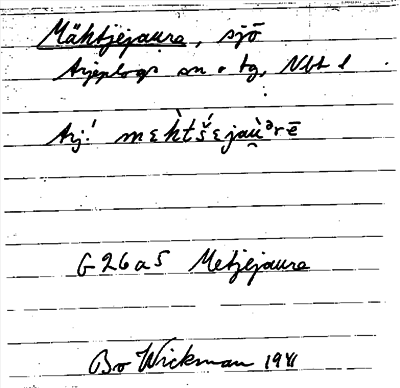 Mähtjejaure, sjö
Arjeplogs sn o tg, Nbt l
Arj.! mεh̀tš́εjaù̯ᵊrē
G 26 a 5 Metjejaure
Bo Wickman 1941